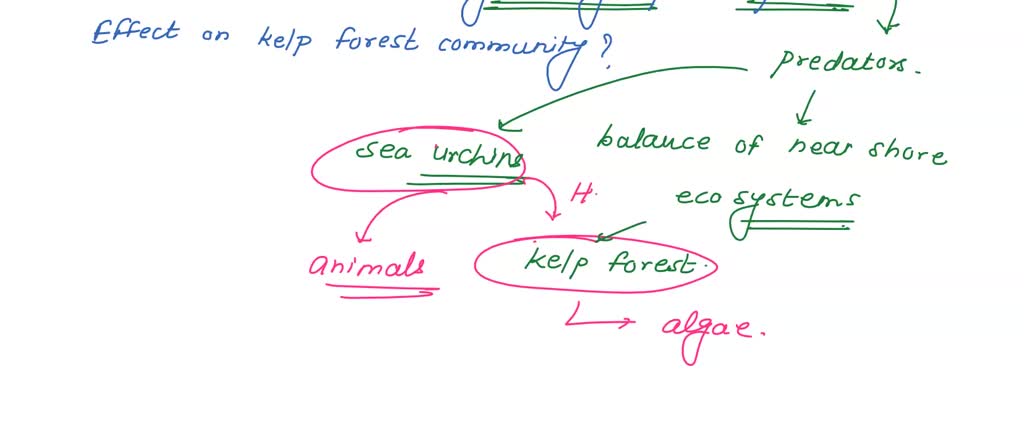 Effect on kelp forest community?
predators.
sea urchins
balance of near shore
eco systems
H.
animals
kelp forest.
algae.